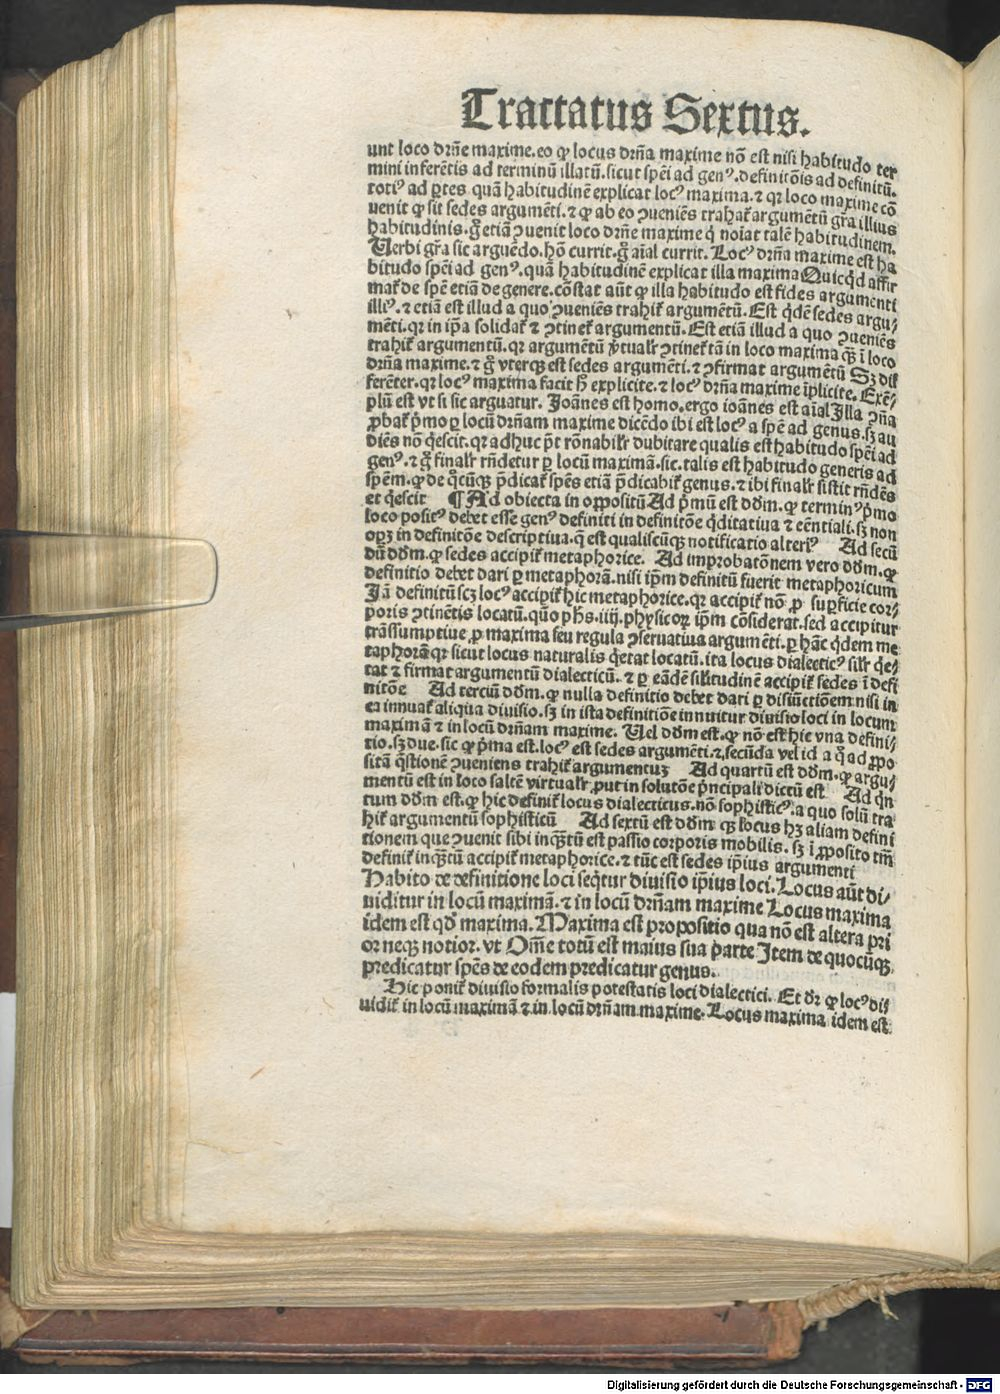 Tractatus Sextus.
unt loco drñe maxime. eo ꝙ locus drña maxime nõ est nisi habitudo ter
mini inferẽtis ad terminũ illatũ. sicut spẽi ad genꝰ. definitõis ad definitũ.
totiꝰ ad ꝑtes quã habitudinẽ explicat locꝰ maxima. ⁊ qꝛ loco maxime cõ
uenit ꝙ sit sedes argumẽti. ⁊ ꝙ ab eo ꝯueniẽs trahat᷑ argumẽtũ gr̃a illius
habitudinis. gͦ etiã ꝯuenit loco drñe maxime q̇ noĩat talẽ habitudinem.
Uerbi gr̃a sic arguẽdo. hõ currit. gͦ aĩal currit. Locꝰ drña maxime est ha
bitudo spẽi ad genꝰ. quã habitudinẽ explicat illa maxima Quicq̇d affir
mat᷑ de spẽ etiã de genere. cõstat aũt ꝙ illa habitudo est fides argumenti
illiꝰ. ⁊ etiã est illud a quo ꝯueniẽs trahit᷑ argumẽtũ. Est q̇dẽ sedes argu⸗
mẽti. qꝛ in ip̃a solidat᷑ ⁊ ꝯtinet᷑ argumentũ. Est etiã illud a quo ꝯueniẽs
trahit᷑ argumentũ. qꝛ argumẽtũ v̓tualr̃ ꝯtinet᷑ tã in loco maxima qꝫ̃ ĩ loco
drña maxime. ⁊ gͦ vterqꝫ est sedes argumẽti. ⁊ ꝯfirmat argumẽtũ Sꝫ dif
ferẽter. qꝛ locꝰ maxima facit h̓ explicite. ⁊ locꝰ drña maxime ĩplicite. Exẽ⸗
plũ est vt si sic arguatur. Joãnes est homo. ergo ioãnes est aĩal Illa ꝯña
ꝓbat᷑ p̓mo ꝑ locũ drñam maxime dicẽdo ibi est locꝰ a spẽ ad genus. sꝫ au
diẽs nõ q̇escit. qꝛ adhuc p̃t rõnabilr̃ dubitare qualis est habitudo spẽi ad
genꝰ. ⁊ gͦ finalr̃ rñdetur ꝑ locũ maximã. sic. talis est habitudo generis ad
spẽm. ꝙ de q̇cũqꝫ p̃dicat᷑ spẽs etiã p̃dicabit᷑ genus. ⁊ ibi finalr̃ sistit rñdẽs
et q̇escit ¶ Ad obiecta in oppositũ Ad p̓mũ est dõm. ꝙ terminꝰ p̓mo
loco positꝰ debet esse genꝰ definiti in definitõe q̇ditatiua ⁊ eẽntiali. sꝫ non
oꝑꝫ in definitõe descriptiua. q̃ est qualiscũqꝫ notificatio alteriꝰ Ad secũ
dũ dõm. ꝙ sedes accipit᷑ metaphorice. Ad improbatõnem vero dõm. ꝙ
definitio debet dari ꝑ metaphorã. nisi ip̃m definitũ fuerit metaphoricum
Jã definitũ scꝫ locꝰ accipit᷑ hic metaphorice. qꝛ accipit᷑ nõ ꝓ suꝑficie cor⸗
poris ꝯtinẽtis locatũ. quõ ph̃s. iiij. physicoꝝ ip̃m cõsiderat. sed accipitur
trãssumptiue ꝓ maxima seu regula ꝯseruatiua argumẽti. ꝑ hãc q̇dem me
taphorã qꝛ sicut locus naturalis q̇etat locatũ. ita locus dialecticꝰ silr̃ q̇e⸗
tat ⁊ firmat argumentũ dialecticũ. ⁊ ꝑ eãdẽ silitudinẽ accipit᷑ sedes ĩ defi
nitõe Ad terciũ dõm. ꝙ nulla definitio debet dari ꝑ disiũctiõem nisi in
ea innuat᷑ aliqua diuisio. sꝫ in ista definitiõe innuitur diuisio loci in locum
maximã ⁊ in locũ drñam maxime. Uel dõm est. ꝙ nõ est hic vna defini⸗
tio. sꝫ due. sic ꝙ p̓ma est. locꝰ est sedes argumẽti. ⁊ secũda vel id a q̊ ad ꝓpo
sitã q̃stionẽ ꝯueniens trahit᷑ argumentuꝫ Ad quartũ est dõm. ꝙ argu⸗
mentũ est in loco saltẽ virtualr̃. put in solutõe p̓ncipali dictũ est Ad qn̄
tum dõm est. ꝙ hic definit᷑ locus dialecticus. nõ sophisticꝰ. a quo solũ tra
hit᷑ argumentũ sophisticũ Ad sextũ est dõm qꝫ locus hꝫ aliam defini
tionem que ꝯuenit sibi inqꝫ̃tũ est passio corporis mobilis. sꝫ ĩ ꝓposito tm̃
definit᷑ inqꝫ̃tũ accipit᷑ metaphorice. ⁊ tũc est sedes ip̃ius argumenti
Habito de definitione loci seq̇tur diuisio ip̃ius loci. Locus aũt di⸗
uiditur in locũ maximã. ⁊ in locũ drñam maxime Locus maxima
idem est qd̓ maxima. Maxima est propositio qua nõ est altera pri
or neqꝫ notior. vt Om̃e totũ est maius sua parte Item de quocũqꝫ
predicatur spẽs de eodem predicatur genus.
Hic ponit᷑ diuisio formalis potestatis loci dialectici. Et dr̃ ꝙ locꝰ di⸗
uidit᷑ in locũ maximã ⁊ in locũ drñam maxime. Locus maxima idem est
Digitalisierung gefördert durch die Deutsche Forschungsgemeinschaft - DFG